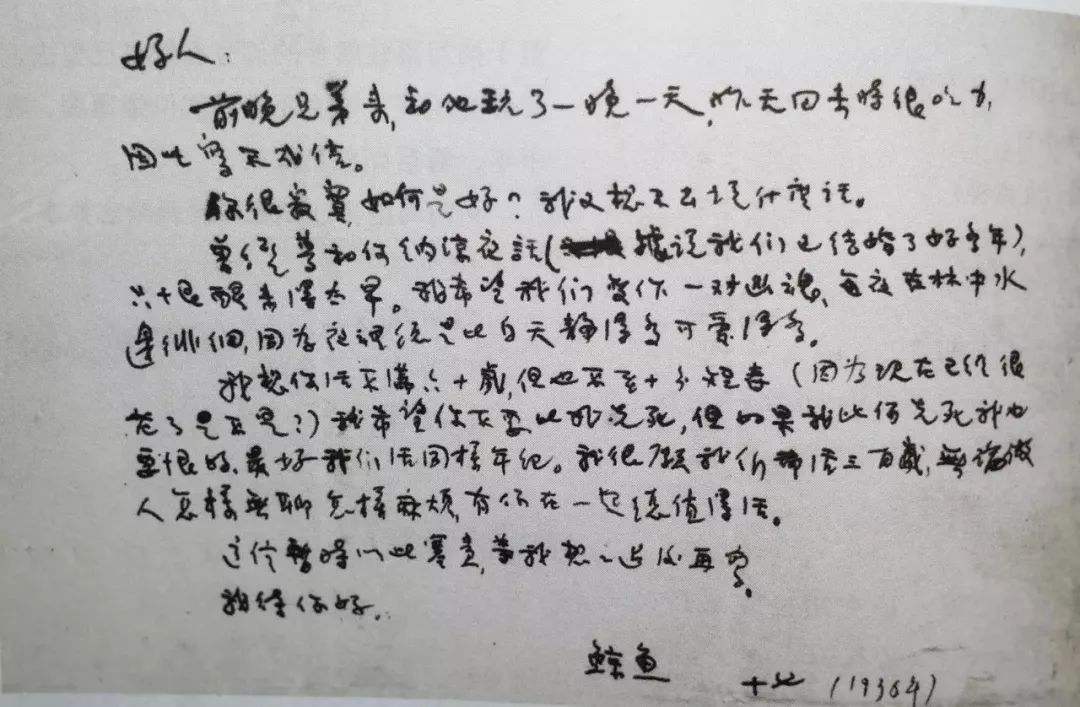 好人：
前晚兄弟来，和他玩了一晚一天，昨天回去时很吃力，
因此写不成信。
你很寂寞，如何是好？我又想不出说什麼话。
曾经 和你纳凉夜話（据说我们已结婚了好多年），
只恨醒来得太早。我希望我们变作一对幽魂，每夜在林中水
邊徘徊，因为夜裡总是比白天静得多可爱得多。
我想你活不满六十歲，但也不至十分短寿（因为现在已经很
老了是不是？）我希望你不要比我先死，但如果我比你先死我也
要恨的，最好我们活同样年纪。我很愿我们都活三百歲，無論做
人怎样無聊怎样麻烦，有你在一起总值得活。
这信暂時以此塞责，等我想想过后再写。
我待你好。
鲸鱼
十 （1936年）